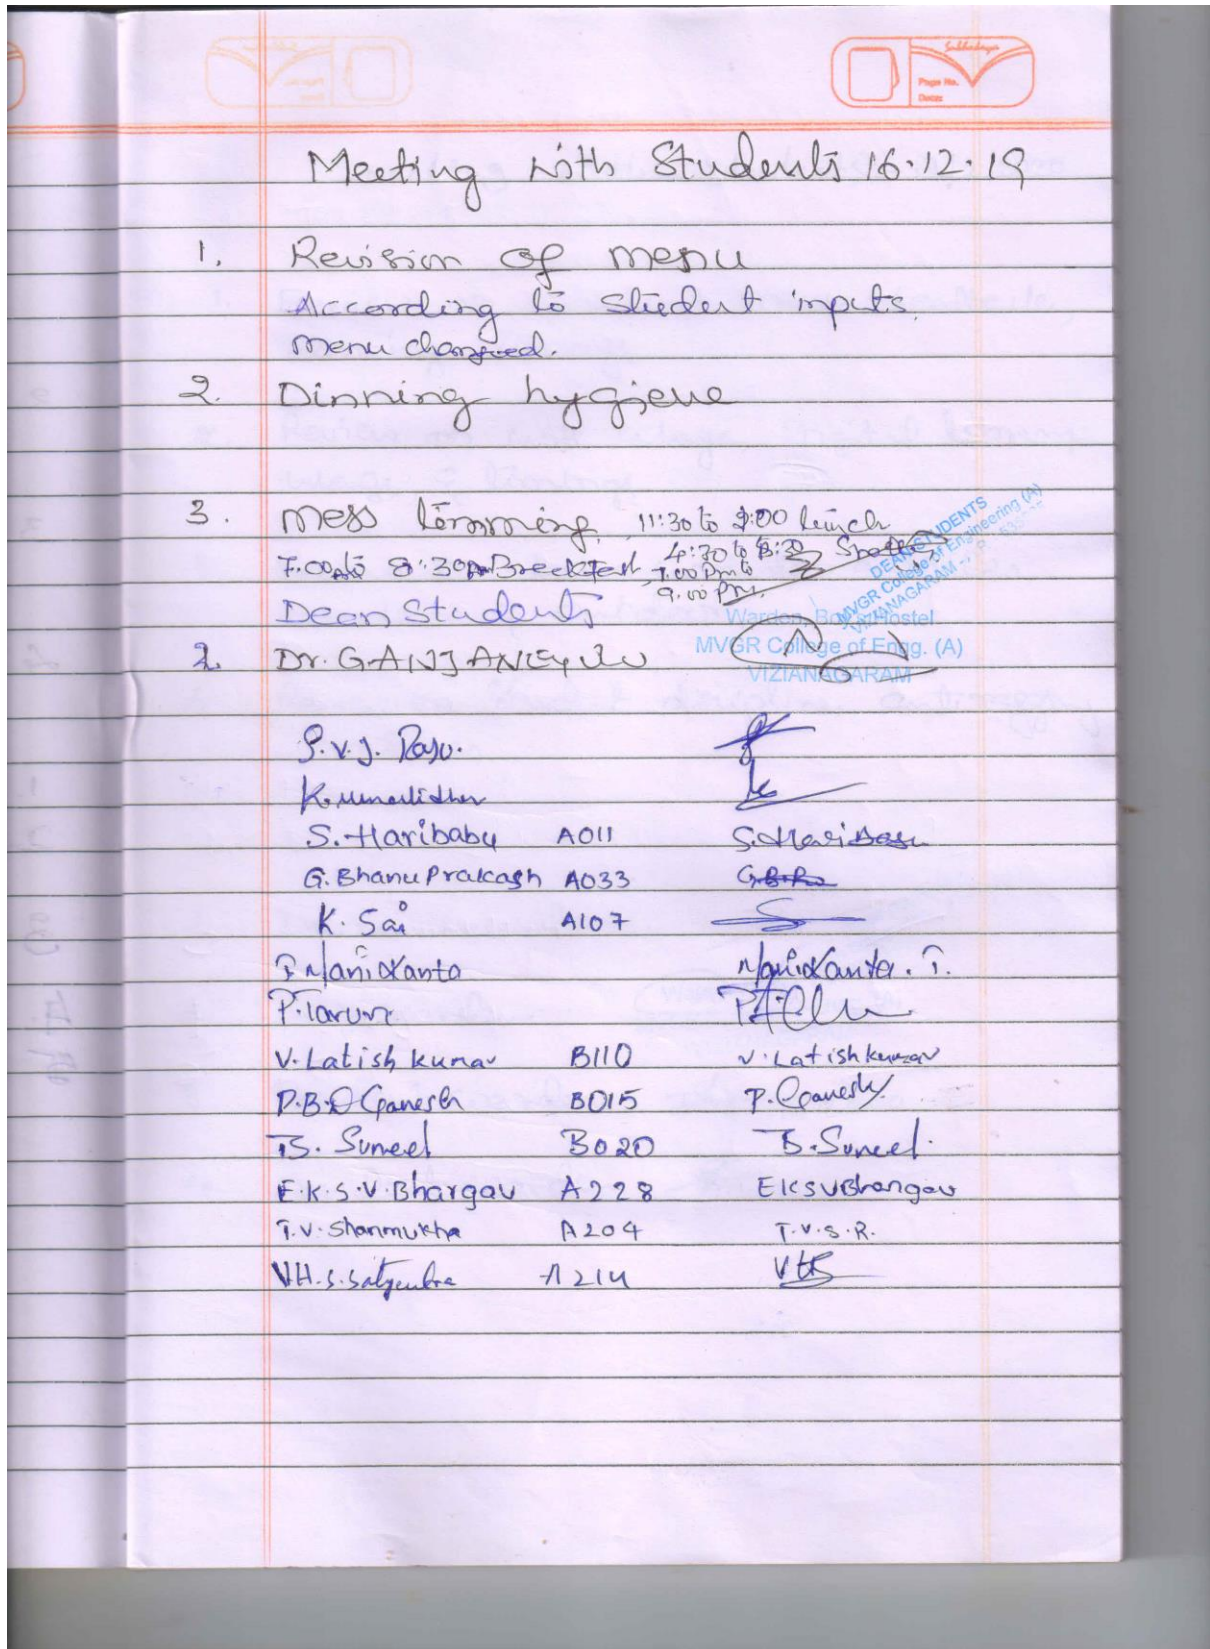 Subhodaya
Page No.
Date:
Meeting with Students 16.12.19
1. Revision of menu
According to student inputs
menu changed.
2. Dinning hygiene
3. mess timming, 11:30 to 2:00 lunch
7.00 to 8:30 Breckfast, 4:30 to
7.00 Pm to
9.00 Pm.
DEAN STUDENTS
MVGR College of Engineering (A)
VIZIANAGARAM
Dean Students
Warden, Boys Hostel
MVGR College of Engg. (A)
VIZIANAGARAM
2. Dr. GANJANEYULU
P.V.J. Raju.
K. Muralidhar
S. Haribabu A011 S. Haribabu
G. Bhanu Prakash A033
K. Sai A107
T Manikanta Manikanta. T.
P. Tarun
V. Latish kumar B110 V. Latish kumar
P.B.D Ganesh B015 P. Ganesh
B. Suneel B020 B. Suneel.
E.K.S.V. Bhargav A228 EKSVBhargav
T.V. Shanmukha A204 T.V.S.R.
VH.S. Satyendra A214 VHS